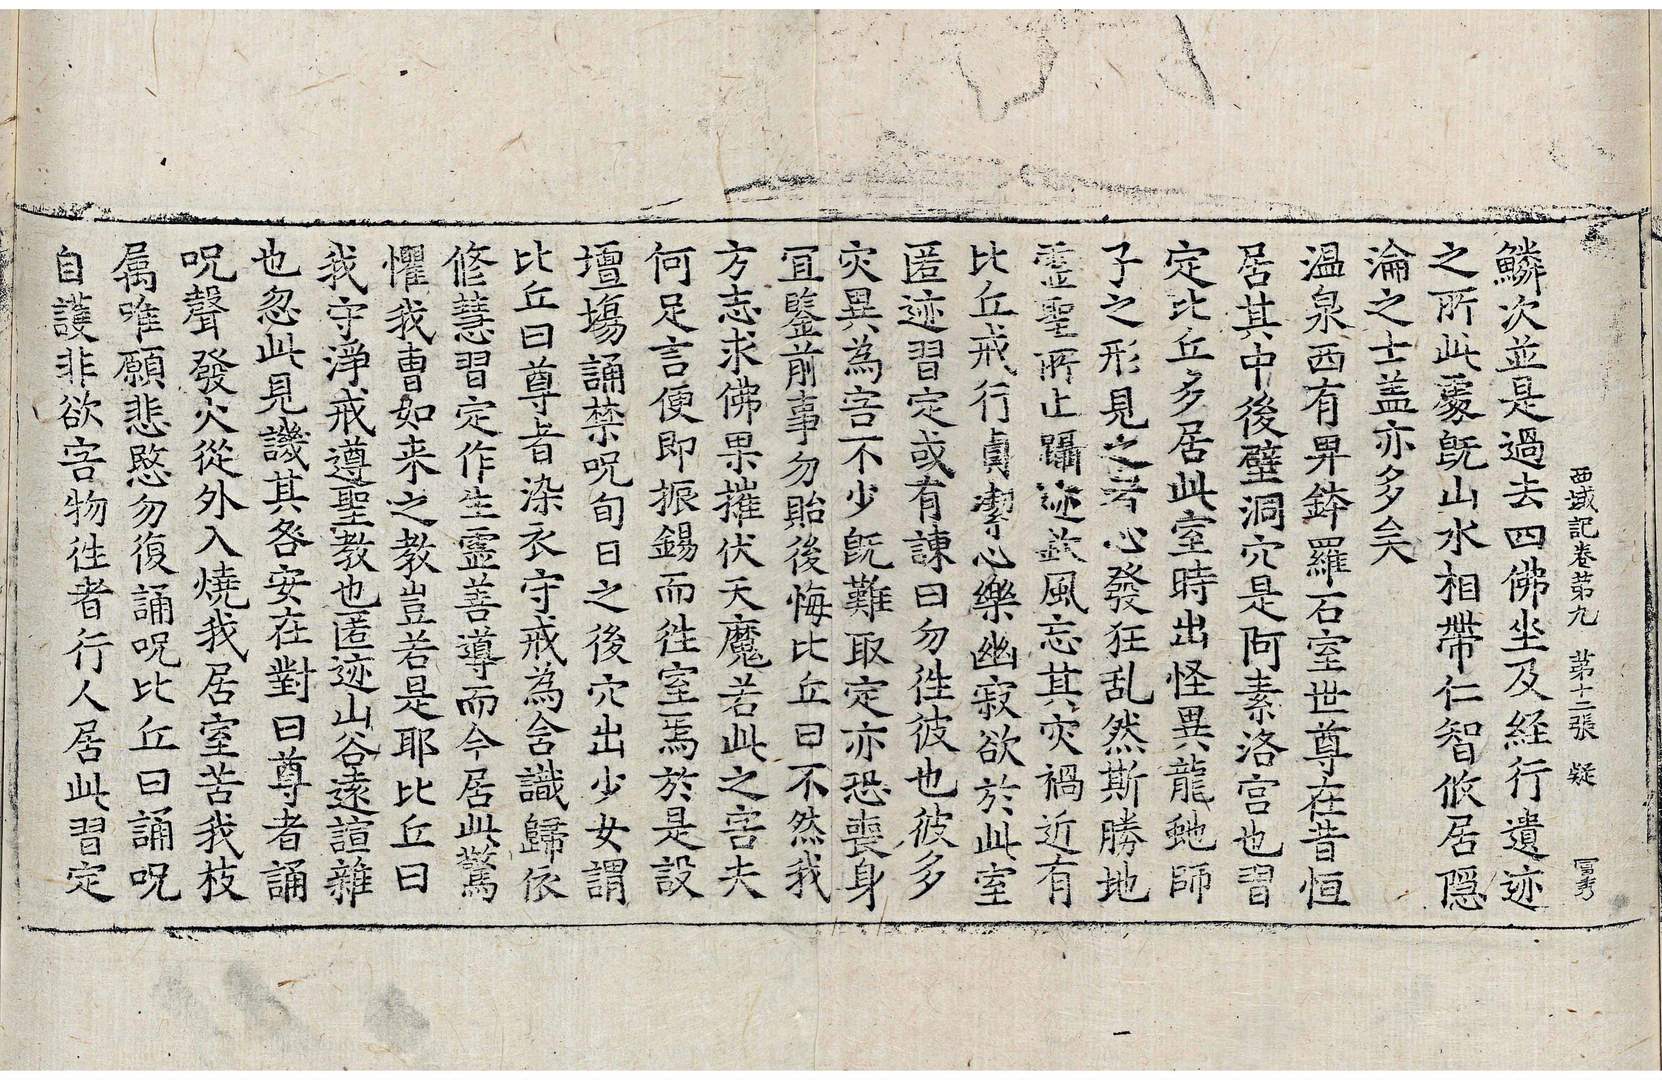 西域記卷第九　第十二張　疑　冨秀
鱗次並是過去四佛坐及経行遺迹
之所此䖏旣山水相帶仁智攸居隱
淪之士盖亦多矣
温泉西有畢鉢羅石室世尊在昔恒
居其中後壁洞穴是阿素洛宮也習
定比丘多居此室時出怪異龍虵師
子之形見之者心發狂乱然斯勝地
霊聖所止躡迹欽風忘其灾禍近有
比丘戒行貞潔心樂幽寂欲於此室
匿迹習定或有諌曰勿徃彼也彼多
灾異為害不少旣難取定亦恐喪身
冝鑒前事勿貽後悔比丘曰不然我
方志求佛果摧伏天魔若此之害夫
何足言便即振錫而徃室焉於是設
壇場誦禁呪旬日之後穴出少女謂
比丘曰尊者染衣守戒為含識歸依
修慧習定作生霊善導而今居此驚
懼我曹如来之教豈若是耶比丘曰
我守淨戒遵聖教也匿迹山谷遠諠雜
也忽此見譏其咎安在對曰尊者誦
呪聲發火從外入燒我居室苦我枝
属唯願悲愍勿復誦呪比丘曰誦呪
自護非欲害物徃者行人居此習定